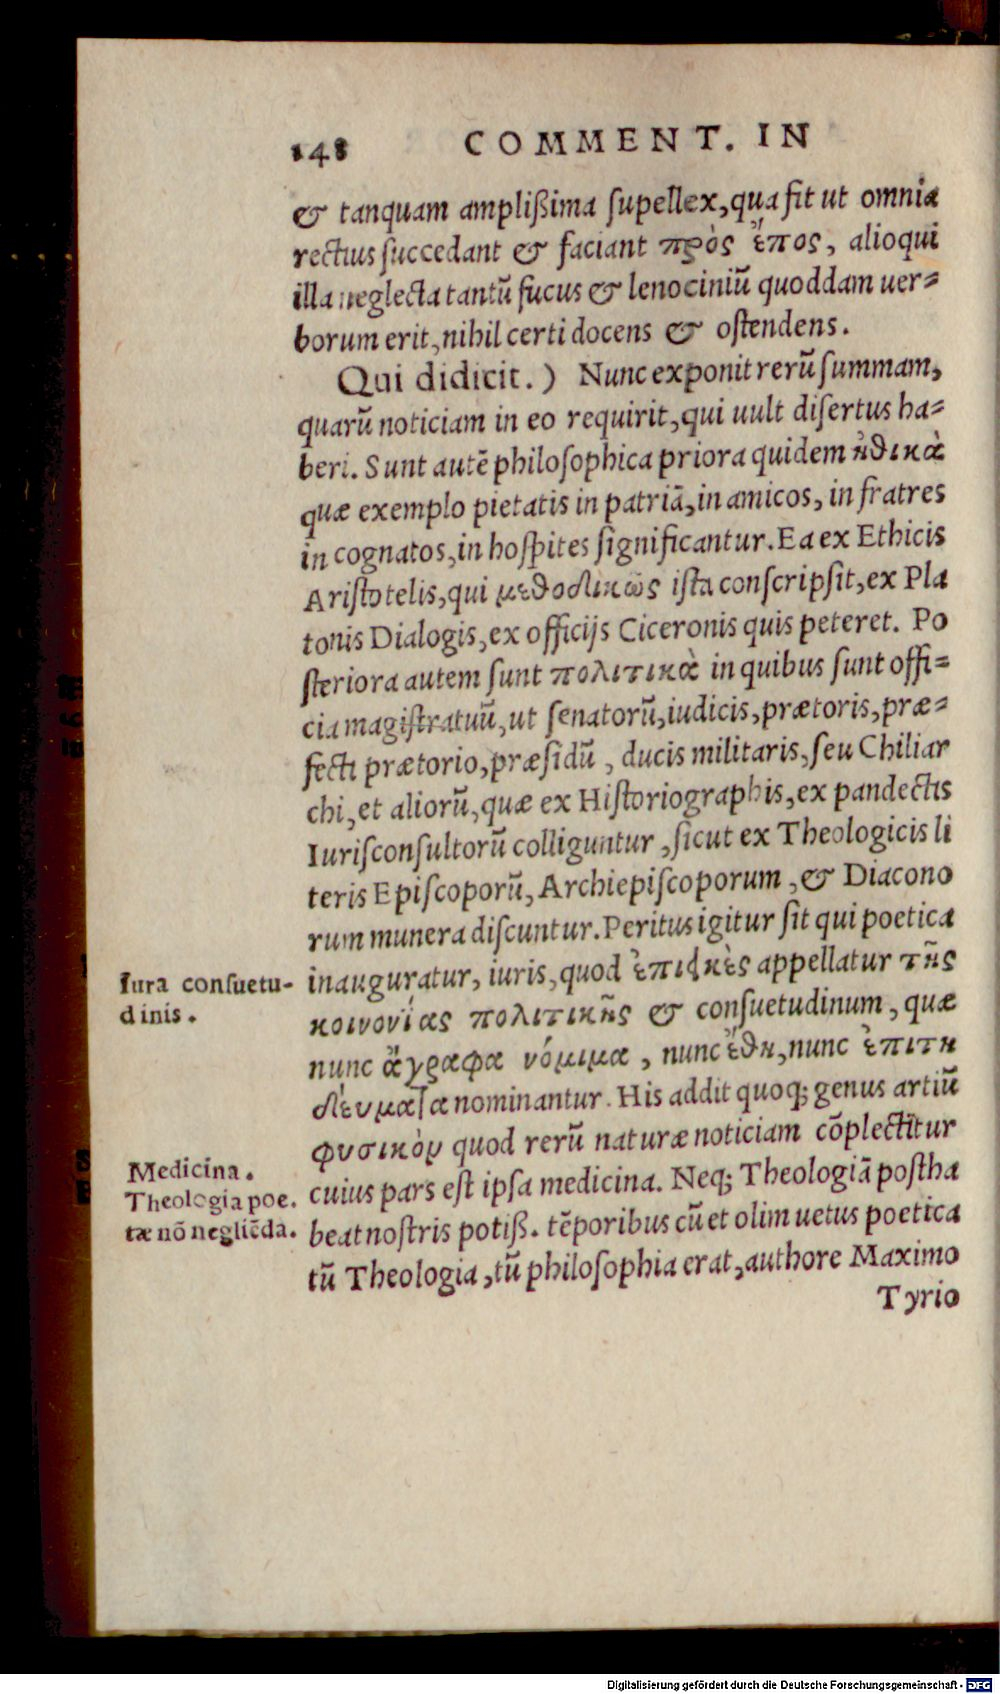 148 COMMENT. IN
& tanquam amplißima ſupellex, qua fit ut omnia
rectius ſuccedant & faciant πρὸς ἔπος, alioqui
illa neglecta tantũ fucus & lenociniũ quoddam uer-
borum erit, nihil certi docens & oſtendens.
Qui didicit.) Nunc exponit rerũ ſummam,
quarũ noticiam in eo requirit, qui uult diſertus ha-
beri. Sunt autẽ philoſophica priora quidem ἠθικὰ
quæ exemplo pietatis in patriã, in amicos, in fratres
in cognatos, in hoſpites ſignificantur. Ea ex Ethicis
Ariſtotelis, qui μεθοδικῶς iſta conſcripſit, ex Pla
tonis Dialogis, ex officijs Ciceronis quis peteret. Po
ſteriora autem ſunt πολιτικὰ in quibus ſunt offi-
cia magiſtratuũ, ut ſenatorũ, iudicis, prætoris, præ-
fecti prætorio, præſidũ, ducis militaris, ſeu Chiliar
chi, et aliorũ, quæ ex Hiſtoriographis, ex pandectis
Iuriſconſultorũ colliguntur, ſicut ex Theologicis li
teris Epiſcoporũ, Archiepiſcoporum, & Diacono
rum munera diſcuntur. Peritus igitur ſit qui poetica
Iura conſuetu-
dinis.
inauguratur, iuris, quod ἐπιεικὲς appellatur τῆς
κοινονίας πολιτικῆς & conſuetudinum, quæ
nunc ἄγραφα νόμιμα, nunc ἔθη, nunc ἐπιτη
δεύματα nominantur. His addit quoq; genus artiũ
φυσικὸν quod rerũ naturæ noticiam cõplectitur
Medicina.
Theologia poe.
tæ nõ negliẽda.
cuius pars eſt ipſa medicina. Neq; Theologiã poſtha
beat noſtris potiß. tẽporibus cũ et olim uetus poetica
tũ Theologia, tũ philoſophia erat, authore Maximo
Tyrio
Digitalisierung gefördert durch die Deutsche Forschungsgemeinschaft - DFG